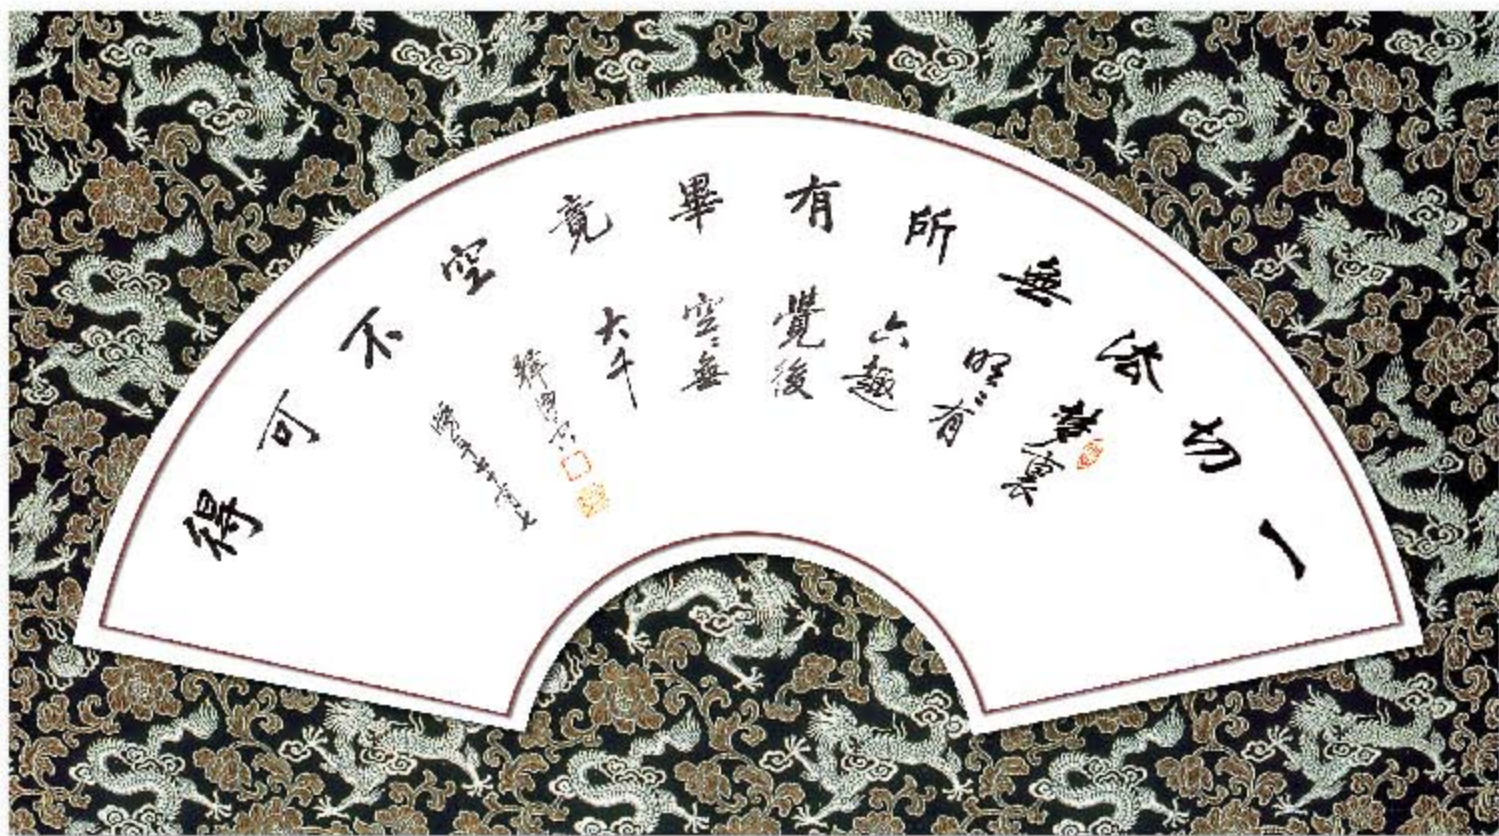 一切法無所有畢竟空不可得
夢裏
明〻有
六趣
覺後
空〻無
大千